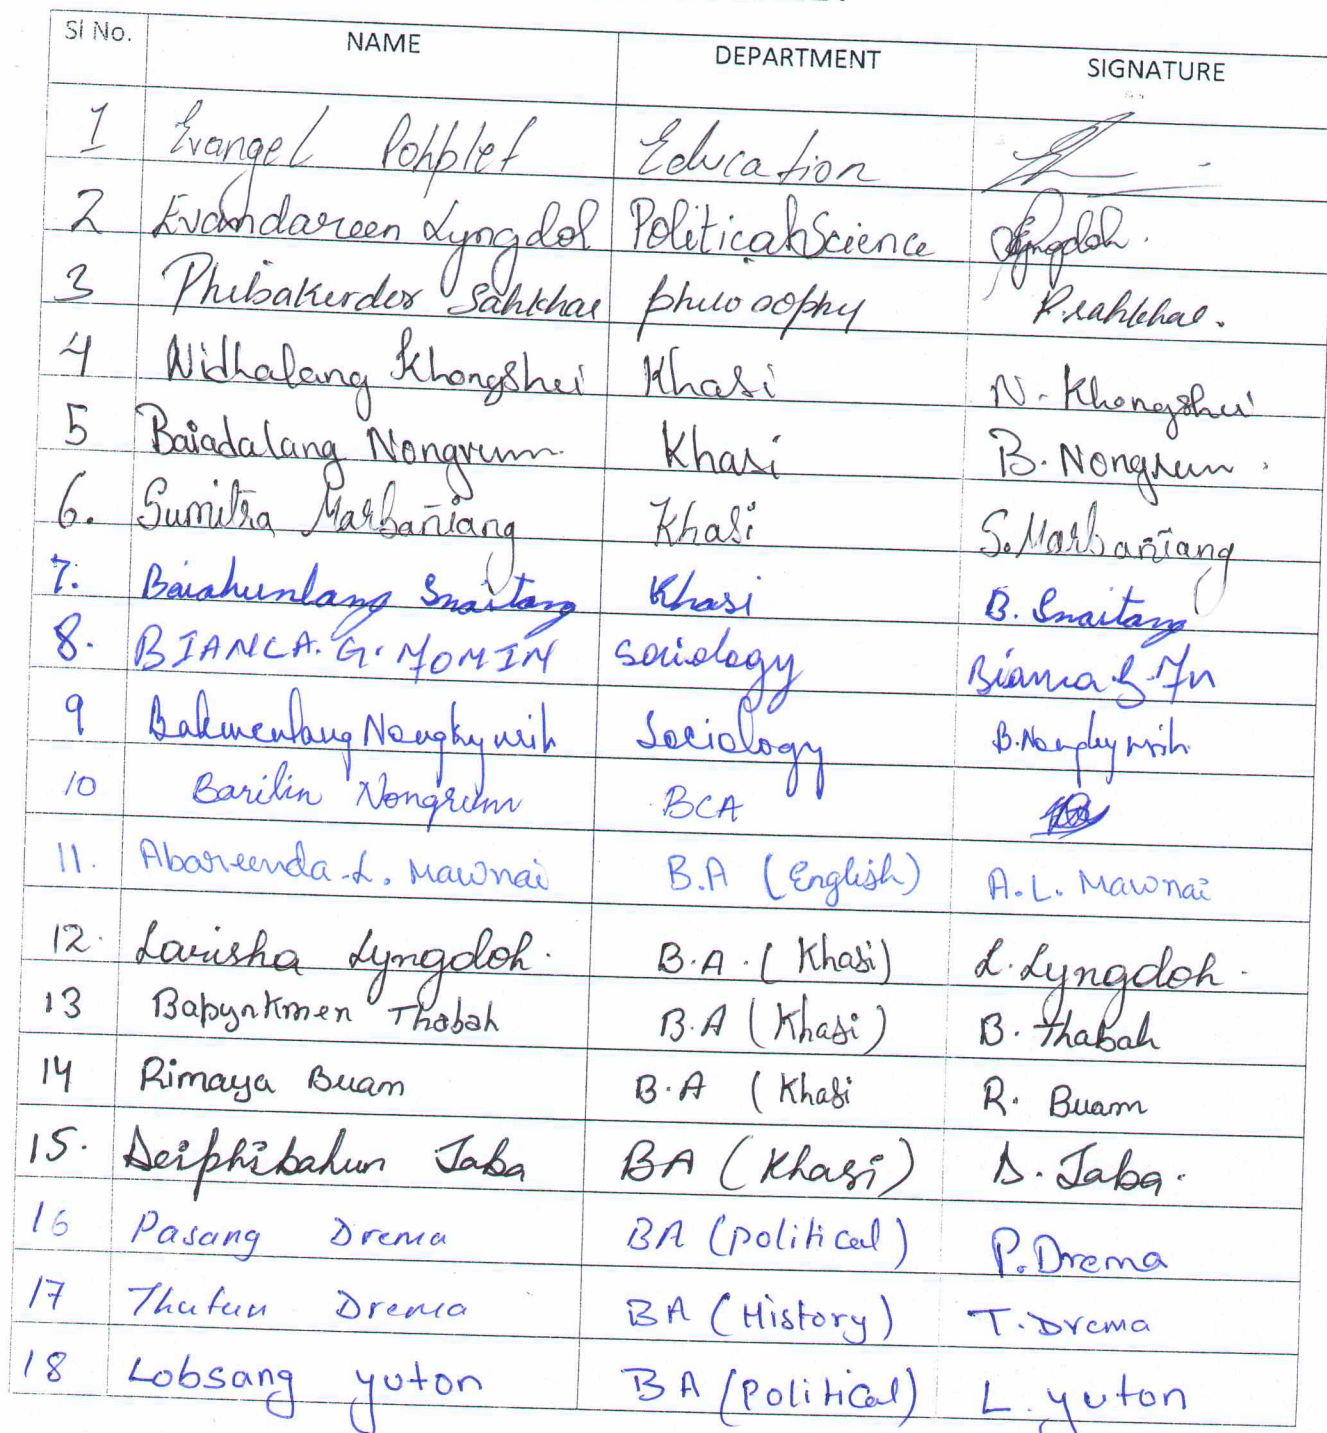 Sl No. NAME DEPARTMENT SIGNATURE
1 Evangel Pohplet Education
2 Evandareen Lyngdoh Political Science Lyngdoh.
3 Phibakerdor Sahkhae philosophy P.sahkhae.
4 Nidhalang Khongshei Khasi N. Khongshei
5 Baiadalang Nongrum. Khasi B. Nongrum.
6. Sumitra Marbaniang Khasi S. Marbaniang
7. Baiahunlang Snaitang Khasi B. Snaitang
8. BIANCA. G. MOMIN sociology Bianca G.
9 Nongkynrih Sociology B. Nongkynrih
10 Barilin Nongrum BCA
11. Abareenda .L. Mawnai B.A (English) A.L. Mawnai
12. Larisha Lyngdoh. B.A. (Khasi) L. Lyngdoh.
13 Bapynkmen Thabah B.A (Khasi) B. Thabah
14 Rimaya Buam B.A (Khasi R. Buam
15. Deiphibahun Jaba BA (Khasi) D. Jaba.
16 Pasang Drema BA (political) P. Drema
17 Drema BA (History) T. Drema
18 Lobsang yuton BA (Political) L. yuton